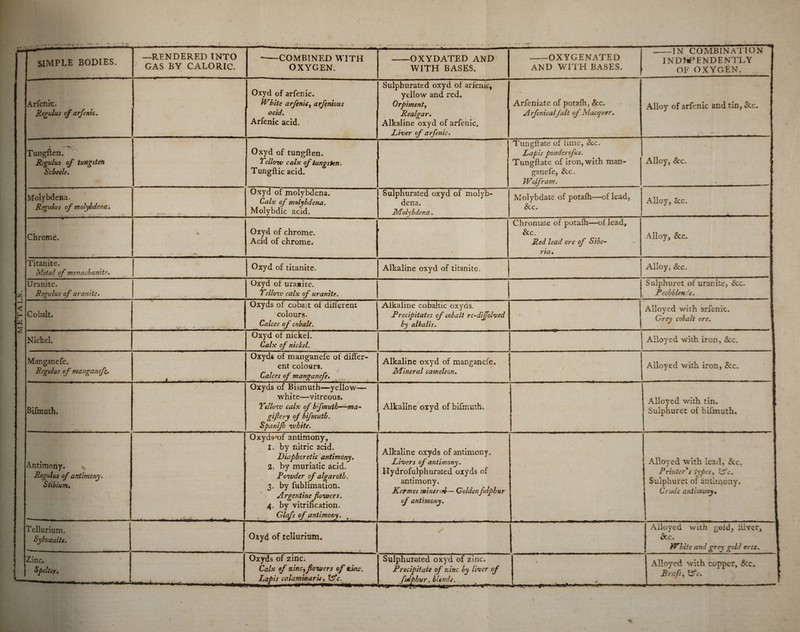 SIMPLE BODIES.
—RENDERED INTO
GAS BY CALORIC.
—COMBINED WITH
OXYGEN.
—OXYDATED AND
WITH BASES.
—OXYGENATED
AND WITH BASES.
—IN COMBINATION
INDEPENDENTLY
OF OXYGEN.
METALS.
Arſenic.
Regulus of arſenic.
Oxyd of arſenic.
White arſenic, arſenious
acid.
Arſenic acid.
Sulphurated oxyd of arſenic,
yellow and red.
Orpiment,
Realgar.
Alkaline oxyd of arſenic.
Liver of arſenic.
Arſeniate of potaſh, &c.
Arſenical ſalt of Macquer.
Alloy of arſenic and tin, &c.
Tungſten.
Regulus of tungsten
Scheele.
Oxyd of tungſten.
Yellow calx of tungsten.
Tungſtic acid.
Tungſtate of lime, &c.
Lapis ponderoſus.
Tungſtate of iron, with man-
ganeſe, &c.
Wolfram.
Alloy, &c.
Molybdena.
Regulus of molybdena.
Oxyd of molybdena.
Calx of molybdena.
Molybdic acid.
Sulphurated oxyd of molyb-
dena.
Molybdena.
Molybdate of potaſh—of lead,
&c.
Alloy, &c.
Chrome.
Oxyd of chrome.
Acid of chrome.
Chromate of potaſh—of lead,
&c.
Red lead ore of Sibe-
ria.
Alloy, &c.
Titanite.
Metal of menachanite.
Oxyd of titanite.
Alkaline oxyd of titanite.
Alloy, &c.
Uranite.
Regulus of uranite.
Oxyd of uranite.
Yellow calx of uranite.
Sulphuret of uranite, &c.
Pechblende.
Cobalt.
Oxyds of cobalt of different
colours.
Calces of cobalt.
Alkaline cobaltic oxyds.
Precipitates of cobalt re-diſſolved
by alkalis.
Alloyed with arſenic.
Grey cobalt ore.
Nickel.
Oxyd of nickel.
Calx of nickel.
Alloyed with iron, &c.
Manganeſe.
Regulus of manganeſe.
Oxyds of manganeſe of differ-
ent colours.
Calces of manganeſe.
Alkaline oxyd of manganeſe.
Mineral cameleon.
Alloyed with iron, &c.
Biſmuth.
Oxyds of Bismuth—yellow—
white—vitreous.
Yellow calx of biſmuth—ma-
giſtery of biſmuth.
Spaniſh white.
Alkaline oxyd of biſmuth.
Alloyed with tin.
Sulphuret of biſmuth.
Antimony.
Regulus of antimony.
Stibium.
Oxyds of antimony,
1. by nitric acid.
Diaphoretic antimony.
2. by muriatic acid.
Powder of algaroth.
3. by ſublimation.
Argentine flowers.
4. by vitrification.
Glaſs of antimony.
Alkaline oxyds of antimony.
Livers of antimony.
Hydroſulphurated oxyds of
antimony.
Kermes mineral—Golden ſulphur
of antimony.
Alloyed with lead, &c.
Printer's types, &c.
Sulphuret of antimony.
Crude antimony.
Tellurium.
Sylvanite.
Oxyd of tellurium.
Alloyed with gold, ſilver,
&c.
White and grey gold ores.
Zinc.
Spelter.
Oxyds of zinc.
Calx of zinc, flowers of zinc.
Lapis calaminaris, &c.
Sulphurated oxyd of zinc.
Precipitate of zinc by liver of
ſulphur, blende.
Alloyed with copper, &c.
Braſs, &c.